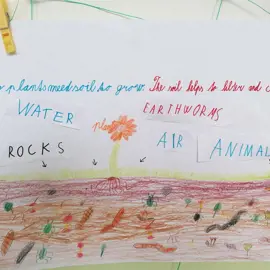 plants need soil to grow. The soil helps to filter and c
WATER EARTHWORMS
pla
ROCKS AIR ANIMAL